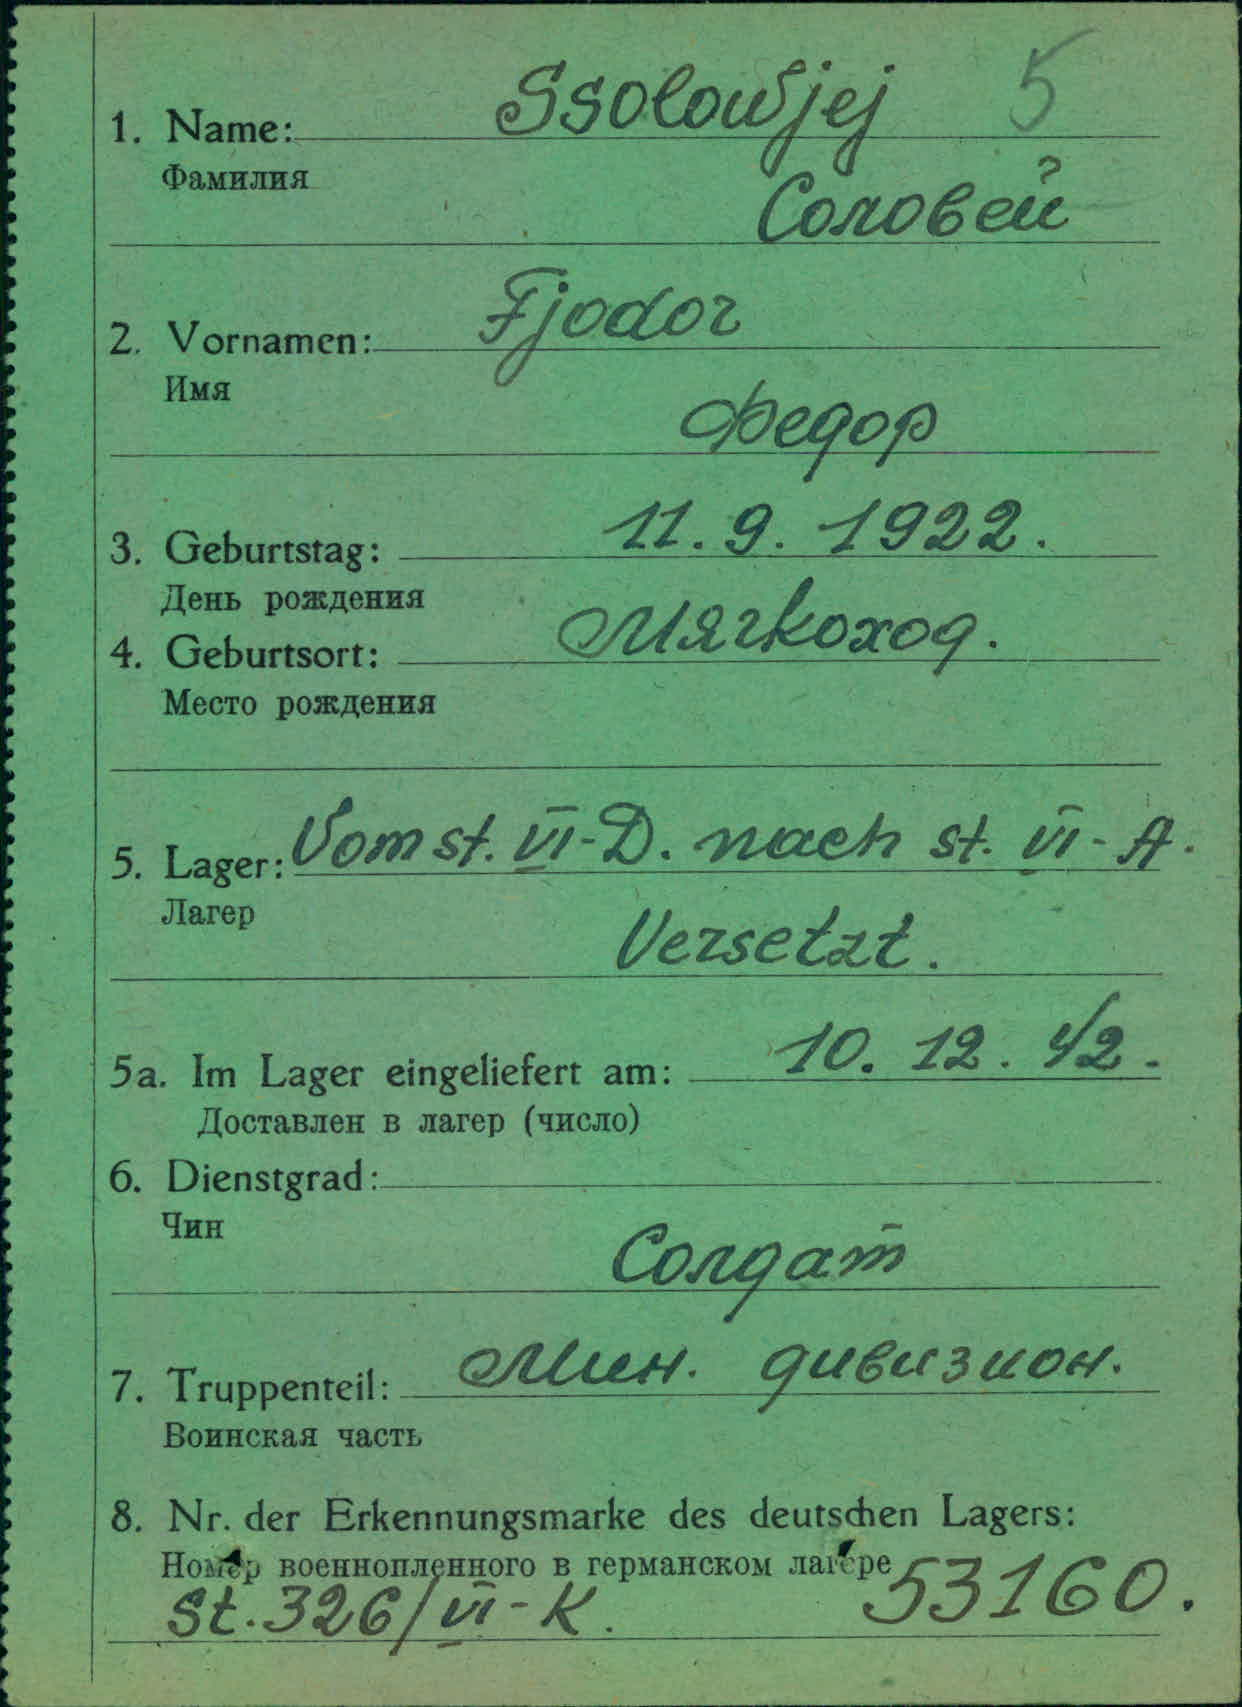 Ssolowjej 5
1. Name:
Фамилия
Соловей
Fjodor
2. Vornamen:
Имя
Федор
3. Geburtstag: 11. 9. 1922.
День рождения
4. Geburtsort: Мягкоход.
Место рождения
5. Lager: Vom st. VI-D. nach st. VI-A.
Лагер
Versetzt.
5a. Im Lager eingeliefert am: 10. 12. 42.
Доставлен в лагер (число)
6. Dienstgrad:
Чин
Солдат
7. Truppenteil: Мин. дивизион.
Воинская часть
8. Nr. der Erkennungsmarke des deutschen Lagers:
Номер военнопленного в германском лагере
St. 326/VI-K. 53160.